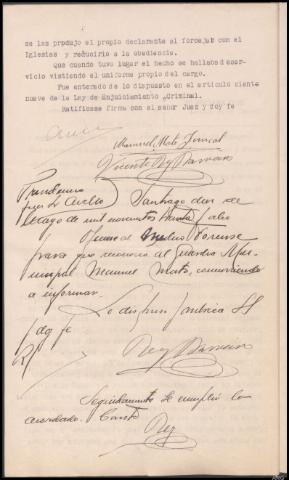 se las produjo el propio declarante al forcejear con el
Iglesias y reducirlo a la obediencia.
Que cuando tuvo lugar el hecho se hallaba de ser-
vicio vistiendo el uniforme propio del cargo.
Fue enterado de lo dispuesto en el artículo ciento
nueve de la Ley de Enjuiciamiento Criminal.
Ratifícase firma con el señor Juez y doy fe
Manuel Mato
Vicente Rey
Providencia
Juez Santiago dos de
Mayo de mil novecientos treinta
Ofíciese al Médico Forense
para que reconozca al Guardia Mu-
nicipal Manuel Mato, comenzando
a informar.
Lo dispuso y rubrica SS
doy fe
Rey
Seguidamente se cumplió lo
acordado. Consta
Rey